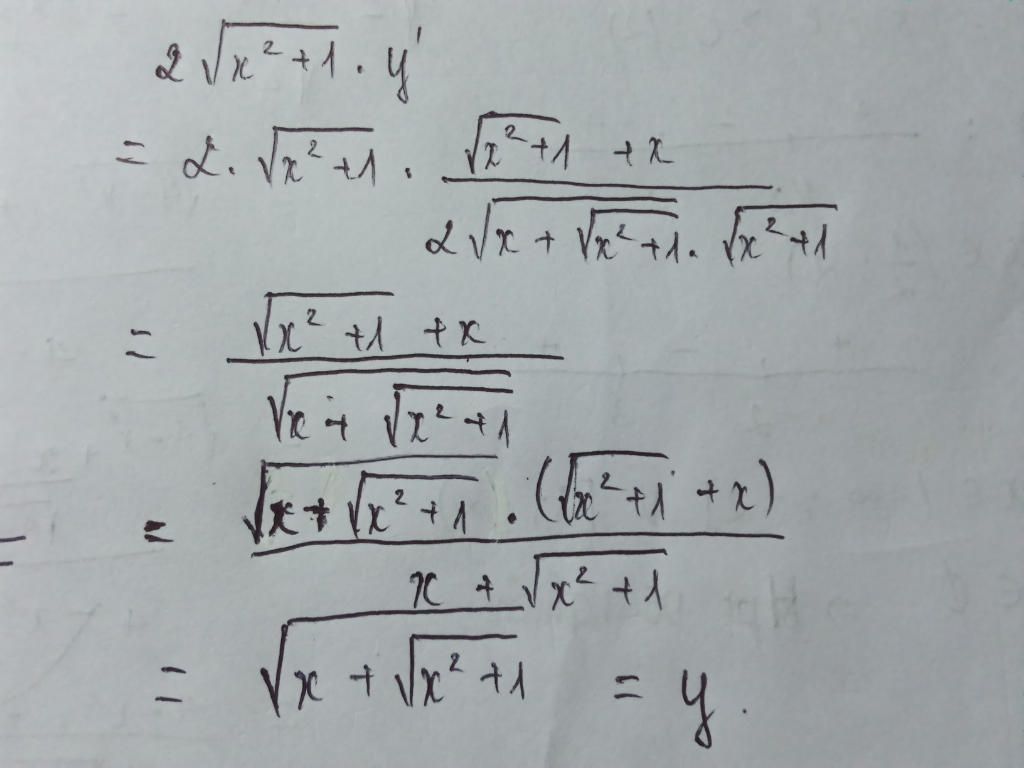 2√(x²+1) . y'
= 2. √(x²+1) . (√(x²+1) + x) / (2√(x + √(x²+1)) . √(x²+1))
= (√(x²+1) + x) / √(x + √(x²+1))
= (√(x + √(x²+1)) . (√(x²+1) + x)) / (x + √(x²+1))
= √(x + √(x²+1)) = y.